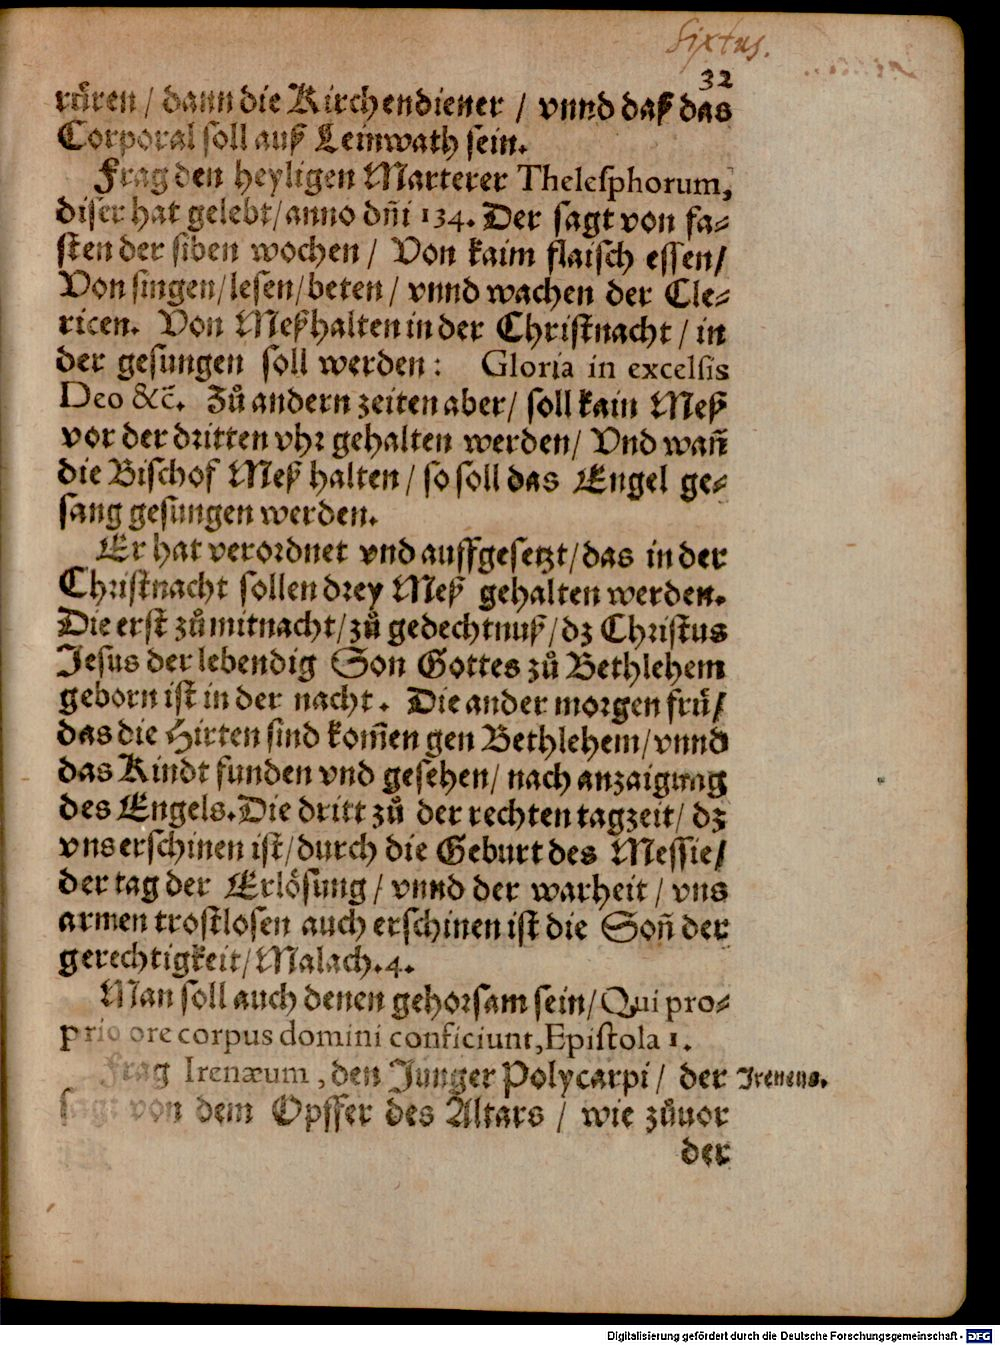 Sixtus.
32
rüren / dann die Kirchendiener / vnnd daß das
Corporal soll auß Leinwath sein.
Frag den heyligen Marterer Thelesphorum,
diser hat gelebt/ anno dn̄i 134. Der sagt von fa⸗
sten der siben wochen / Von kaim flaisch essen/
Von singen/lesen/beten / vnnd wachen der Cle⸗
ricen. Von Meßhalten in der Christnacht / in
der gesungen soll werden: Gloria in excelsis
Deo &c̄. Zů andern zeiten aber/ soll kain Meß
vor der dritten vhr gehalten werden/ Vnd wañ
die Bischof Meß halten / so soll das Engel ge⸗
sang gesungen werden.
Er hat verordnet vnd auffgesetzt/das in der
Christnacht sollen drey Meß gehalten werden.
Die erst zů mitnacht/zů gedechtnuß/dz Christus
Jesus der lebendig Son Gottes zů Bethlehem
geborn ist in der nacht. Die ander morgen frů/
das die Hirten sind kom̄en gen Bethlehem/vnnd
das Kindt funden vnd gesehen/ nach anzaigung
des Engels. Die dritt zů der rechten tagzeit/ dz
vns erschinen ist/durch die Geburt des Messie/
der tag der Erlösung / vnnd der warheit / vns
armen trostlosen auch erschinen ist die Soñ der
gerechtigkeit/Malach.4.
Man soll auch denen gehorsam sein/Qui pro⸗
prio ore corpus domini conficiunt, Epistola 1.
Frag Irenæum, den Junger Polycarpi / der
Ireneus.
sagt von dem Opffer des Altars / wie zůuor
der
Digitalisierung gefördert durch die Deutsche Forschungsgemeinschaft - DFG